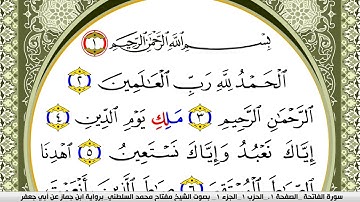 بِسْمِ ٱللَّهِ ٱلرَّحْمَٰنِ ٱلرَّحِيمِ ١
ٱلْحَمْدُ لِلَّهِ رَبِّ ٱلْعَٰلَمِينَ ٢
ٱلرَّحْمَٰنِ ٱلرَّحِيمِ ٣ مَلِكِ يَوْمِ ٱلدِّينِ ٤
إِيَّاكَ نَعْبُدُ وَإِيَّاكَ نَسْتَعِينُ ٥ ٱهْدِنَا
ٱلصِّرَٰطَ ٱلْمُسْتَقِيمَ ٦ صِرَٰطَ ٱلَّذِينَ أَنْعَمْتَ
سورة الفاتحة_ الصفحة 1_ الحزب 1_ الجزء 1_ بصوت الشيخ مفتاح محمد السلطني_ برواية ابن جماز عن أبي جعفر